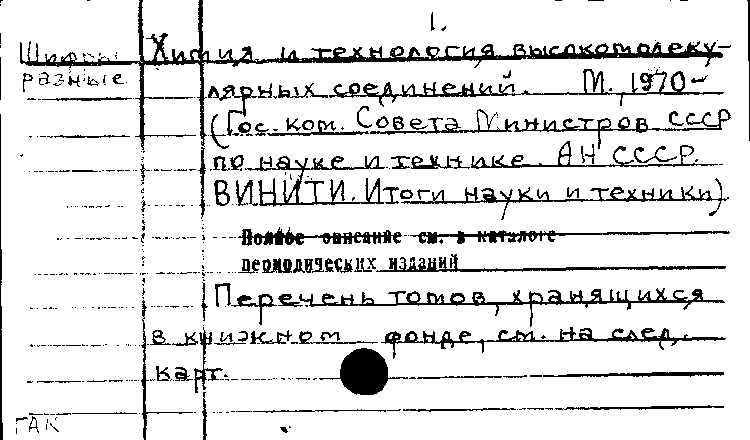 1.
Шифры Химия и технология высокомолеку-
разные лярных соединений. М., 1970-
(Гос. ком. Совета Министров СССР
по науке и технике. АН СССР.
ВИНИТИ. Итоги науки и техники)
Полное описание см. в каталоге
периодических изданий
Перечень томов, хранящихся
в книжном фонде, см. на след.
карт.
ГАК